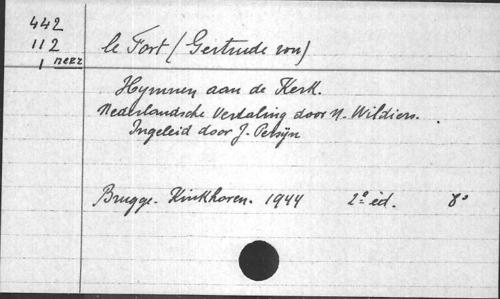 442
112 le Fort (Gertrude von)
1 nerz
Hymnen aan de Kerk.
Nederlandsche Vertaling door N. Wildiers.
Ingeleid door J. Persyn
Brugge. Kinkhoren. 1944 2e éd. 8°